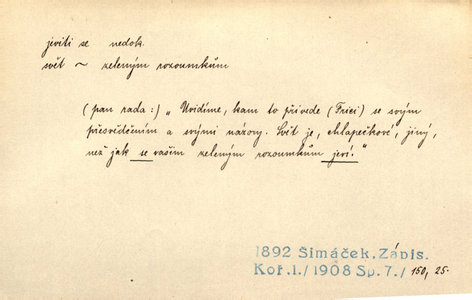 jeviti se nedok.
svět ~ zeleným rozoumkům
(pan rada:) „Uvidíme, kam to přivede (Frici) se svým
přesvědčením a svými názory. Svět je, chlapečkové, jiný,
než jak se vašim zeleným rozoumkům jeví.“
1892 Šimáček, Zápis.
Koř.I./1908 Sp.7./ 150, 25.